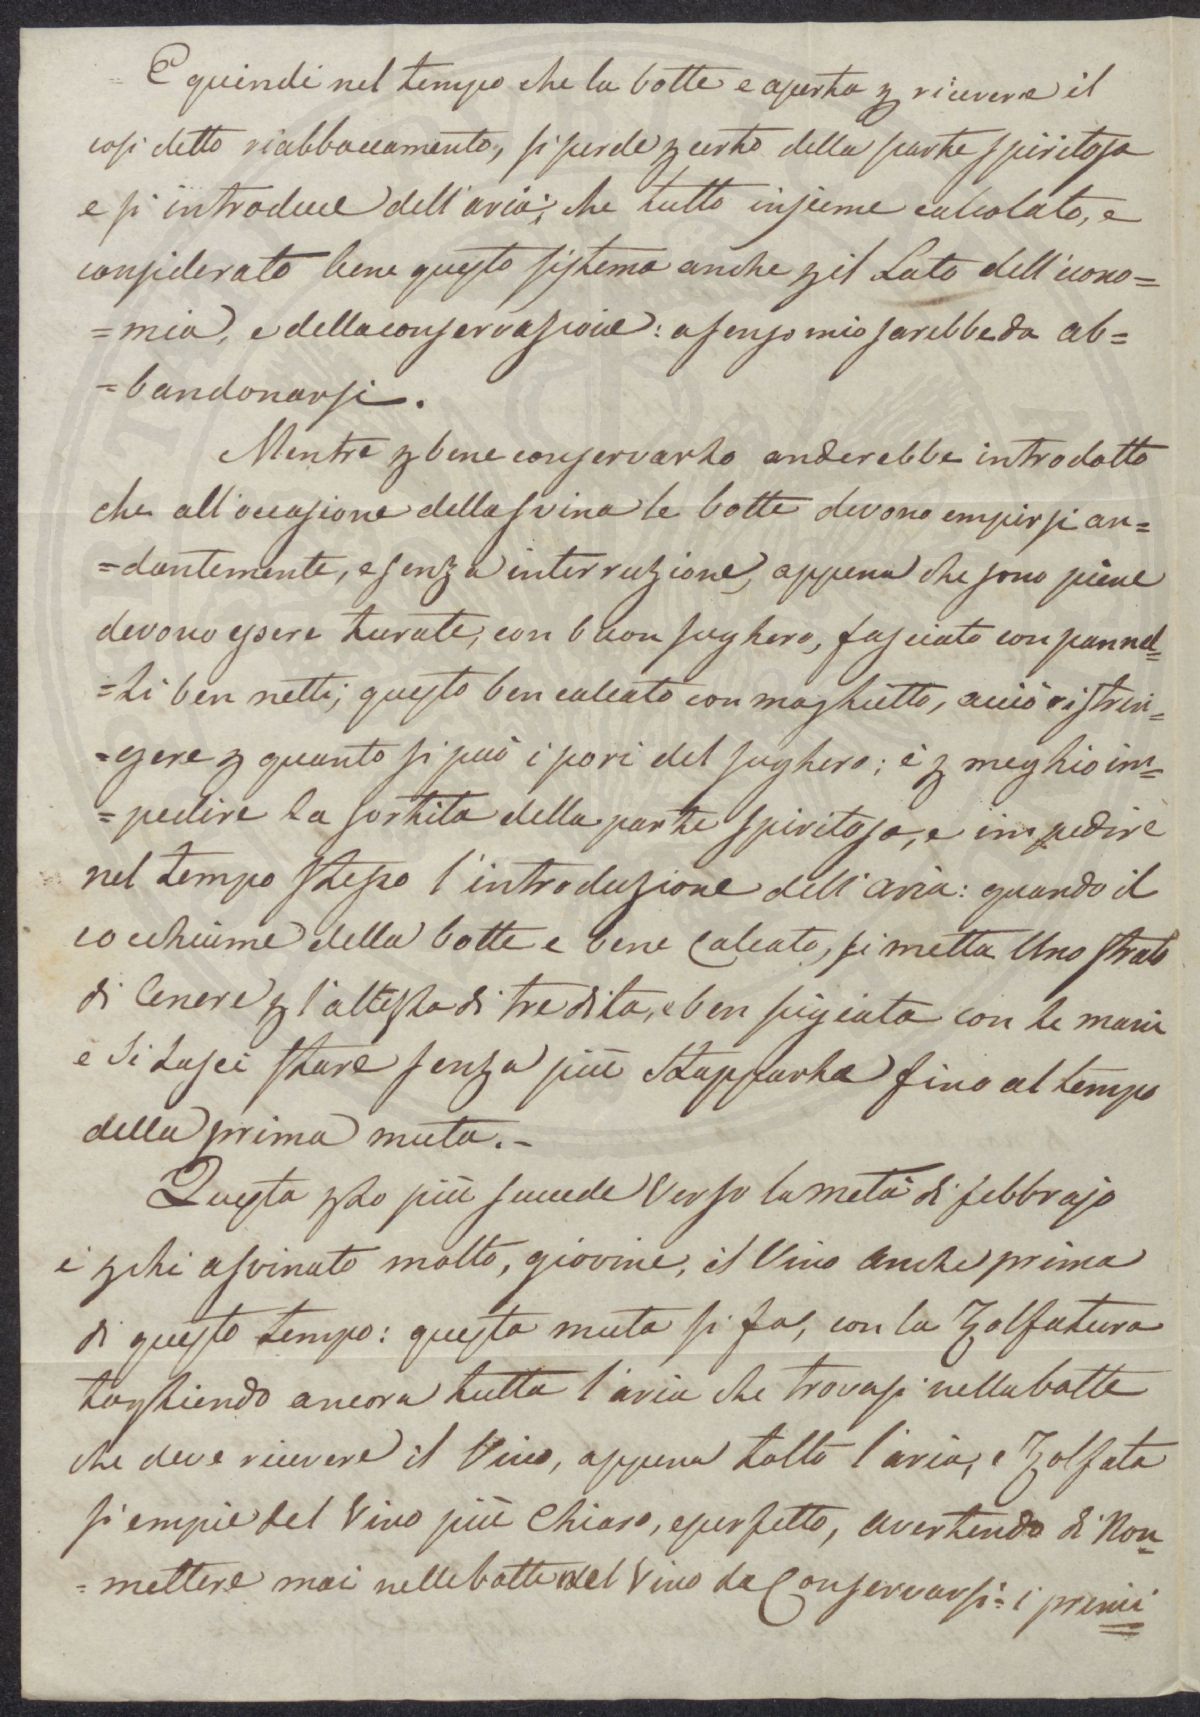 E quindi nel tempo che la botte e aperta p ricevere il
cosi detto riabboccamento, si perde p certo della parte spiritosa
e si introduce dell'aria; che tutto insieme calcolato, e
considerato bene questo sistema anche p il Lato dell'econo=
=mia, e della conservazione: a senso mio sarebbe da ab=
=bandonarsi.
Mentre p bene conservarlo anderebbe introdotto
che all'occasione della svina le botte devono empirsi an=
=dantemente, e senza interruzione, appena che sono piene
devono essere turate, con buon sughero, fasciato con pannel=
=li ben netti; questo ben calcato con maglietto, acciò ristrin=
=gere p quanto si può i pori del sughero; e p meglio im=
=pedire la sortita della parte spiritosa, e impedire
nel tempo stesso l'introduzione dell'aria: quando il
cocchiume della botte e bene Calcato, si metta Uno strato
di Cenere p l'altezza di tre dita, e ben pigiata con le mani
e si Lasci stare senza più stapparla fino al tempo
della prima muta.-
Questa p lo più succede verso la metà di febbrajo
e p chi a svinato molto, giovine, il Vino anche prima
di questo tempo: questa muta si fa, con la Zolfatura
togliendo ancora tutta l'aria che trovasi nella botte
che deve ricevere il Vino, appena tolto l'aria, e Zolfata
si empie del Vino più Chiaro, e perfetto, avertendo di Non=
=mettere mai nelle botte del Vino da Conservarsi= i primi